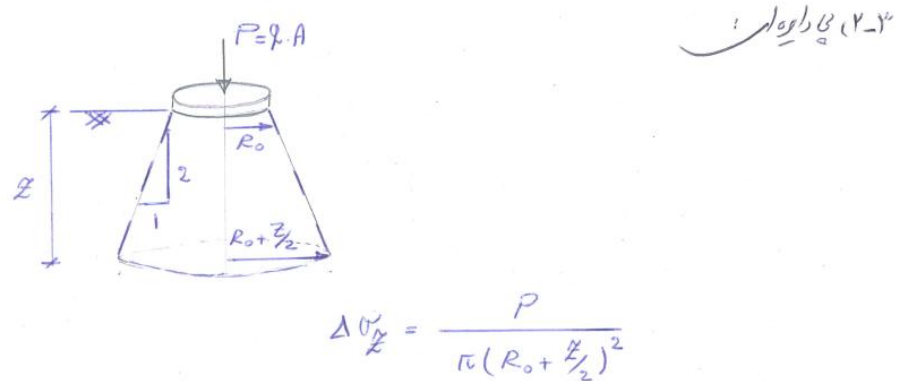 ۳-۲) پی دایره‌ای :
P = q.A
R₀
Z
2
1
R₀ + Z/2
Δσ_Z = P / π(R₀ + Z/2)²